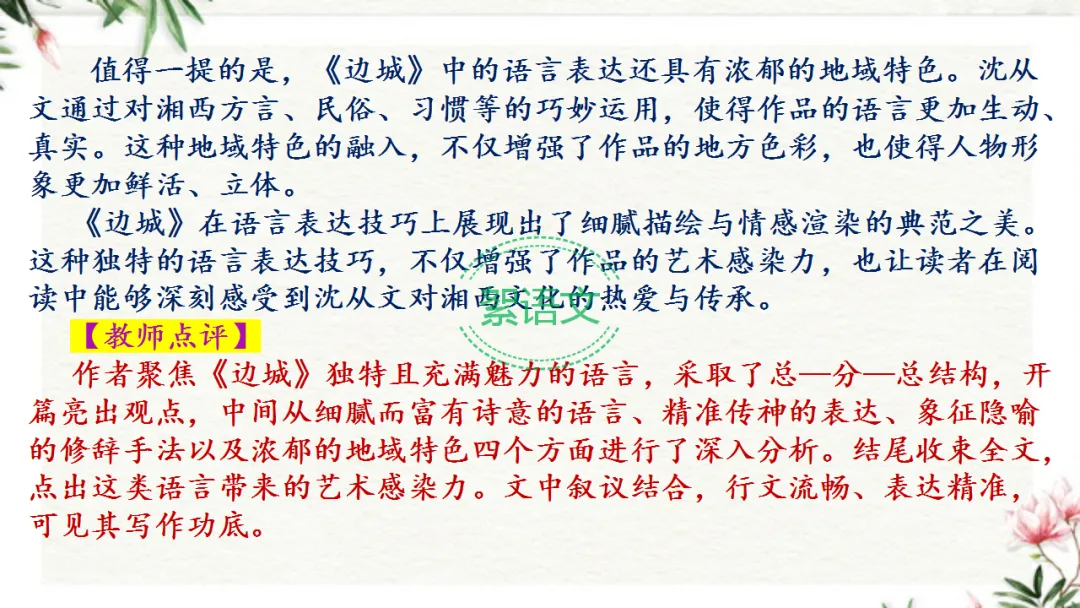 值得一提的是，《边城》中的语言表达还具有浓郁的地域特色。沈从
文通过对湘西方言、民俗、习惯等的巧妙运用，使得作品的语言更加生动、
真实。这种地域特色的融入，不仅增强了作品的地方色彩，也使得人物形
象更加鲜活、立体。
《边城》在语言表达技巧上展现出了细腻描绘与情感渲染的典范之美。
这种独特的语言表达技巧，不仅增强了作品的艺术感染力，也让读者在阅
读中能够深刻感受到沈从文对湘西文化的热爱与传承。
絮语文
【教师点评】
作者聚焦《边城》独特且充满魅力的语言，采取了总—分—总结构，开
篇亮出观点，中间从细腻而富有诗意的语言、精准传神的表达、象征隐喻
的修辞手法以及浓郁的地域特色四个方面进行了深入分析。结尾收束全文，
点出这类语言带来的艺术感染力。文中叙议结合，行文流畅、表达精准，
可见其写作功底。